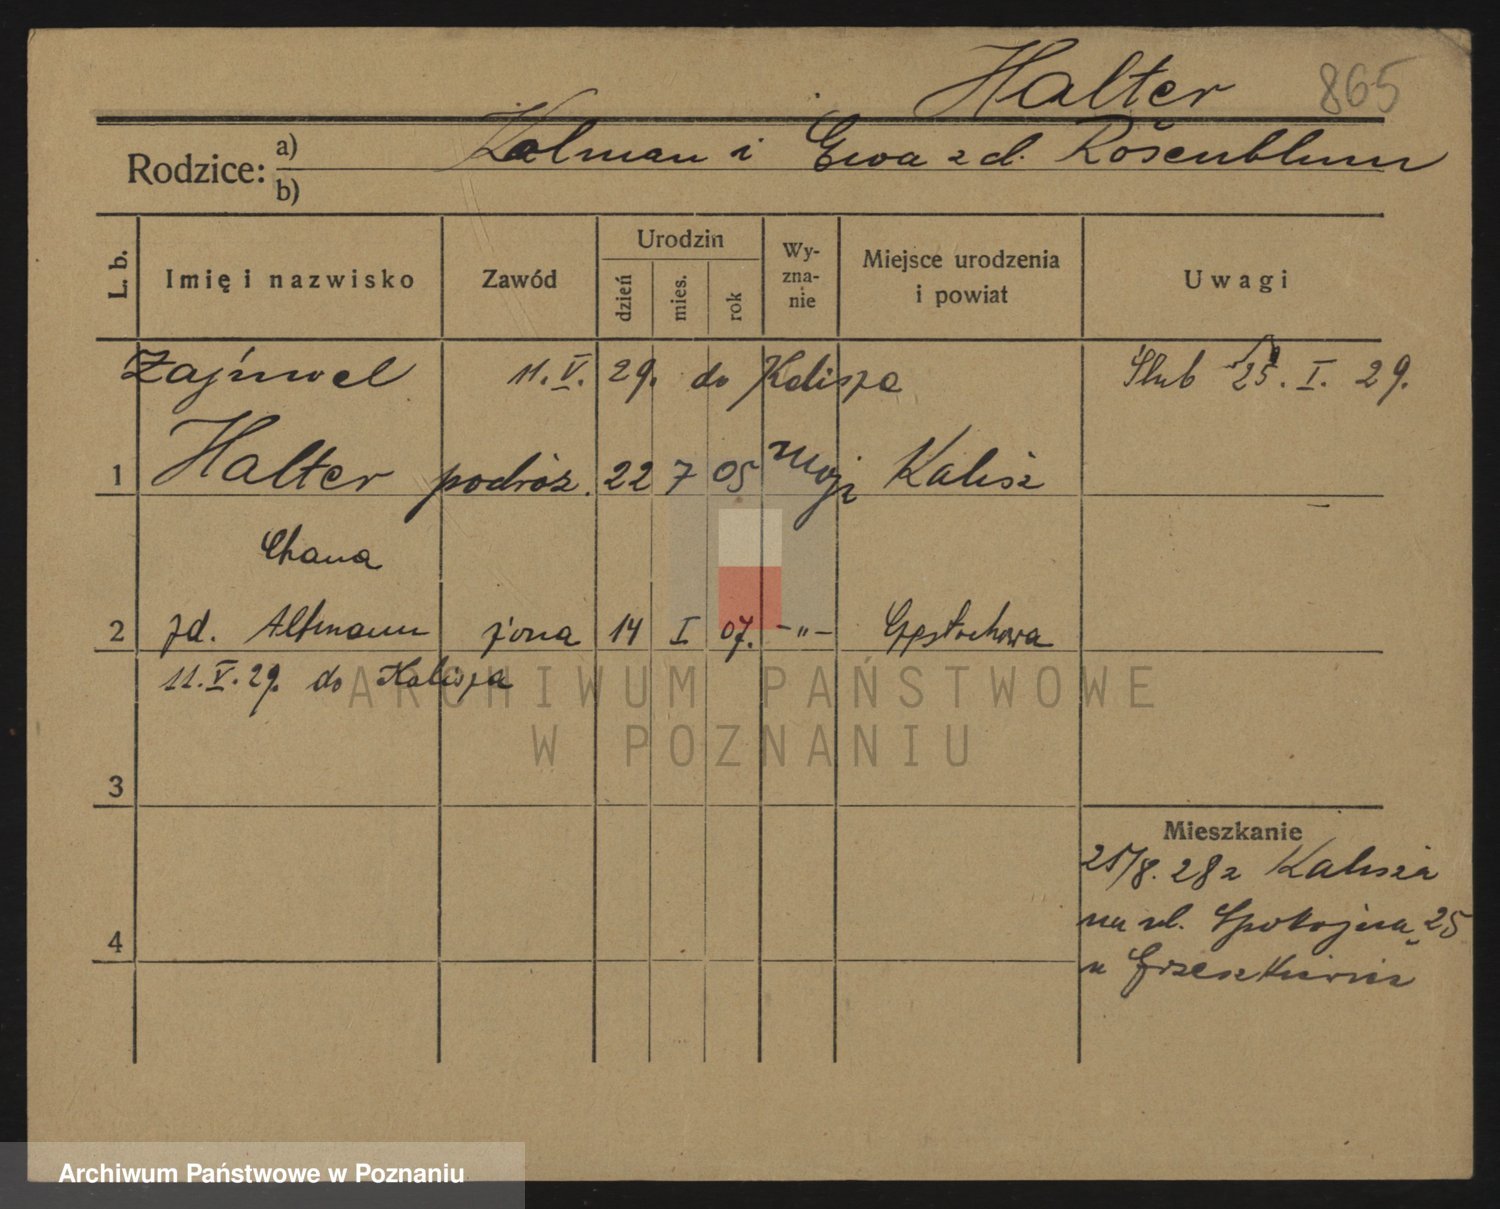 Halter 865
Rodzice: a) Kalman i Ewa z d. Rosenblum
b)
L. b. Imię i nazwisko Zawód Urodzin dzień mies. rok Wyznanie Miejsce urodzenia i powiat Uwagi
Zajnwel 11. V. 29. do Kalisza Ślub 25. I. 29.
1 Halter podróż. 22 7 05 mojż Kalisz
Chana
2 zd. Altmann żona 14 I 07. -"- Częstochowa
11. V. 29. do Kalisza
ARCHIWUM PAŃSTWOWE
W POZNANIU
3
Mieszkanie
25/8. 28 z Kalisza
na ul. Spokojna 25
4
u Grzeszkiewicz
Archiwum Państwowe w Poznaniu